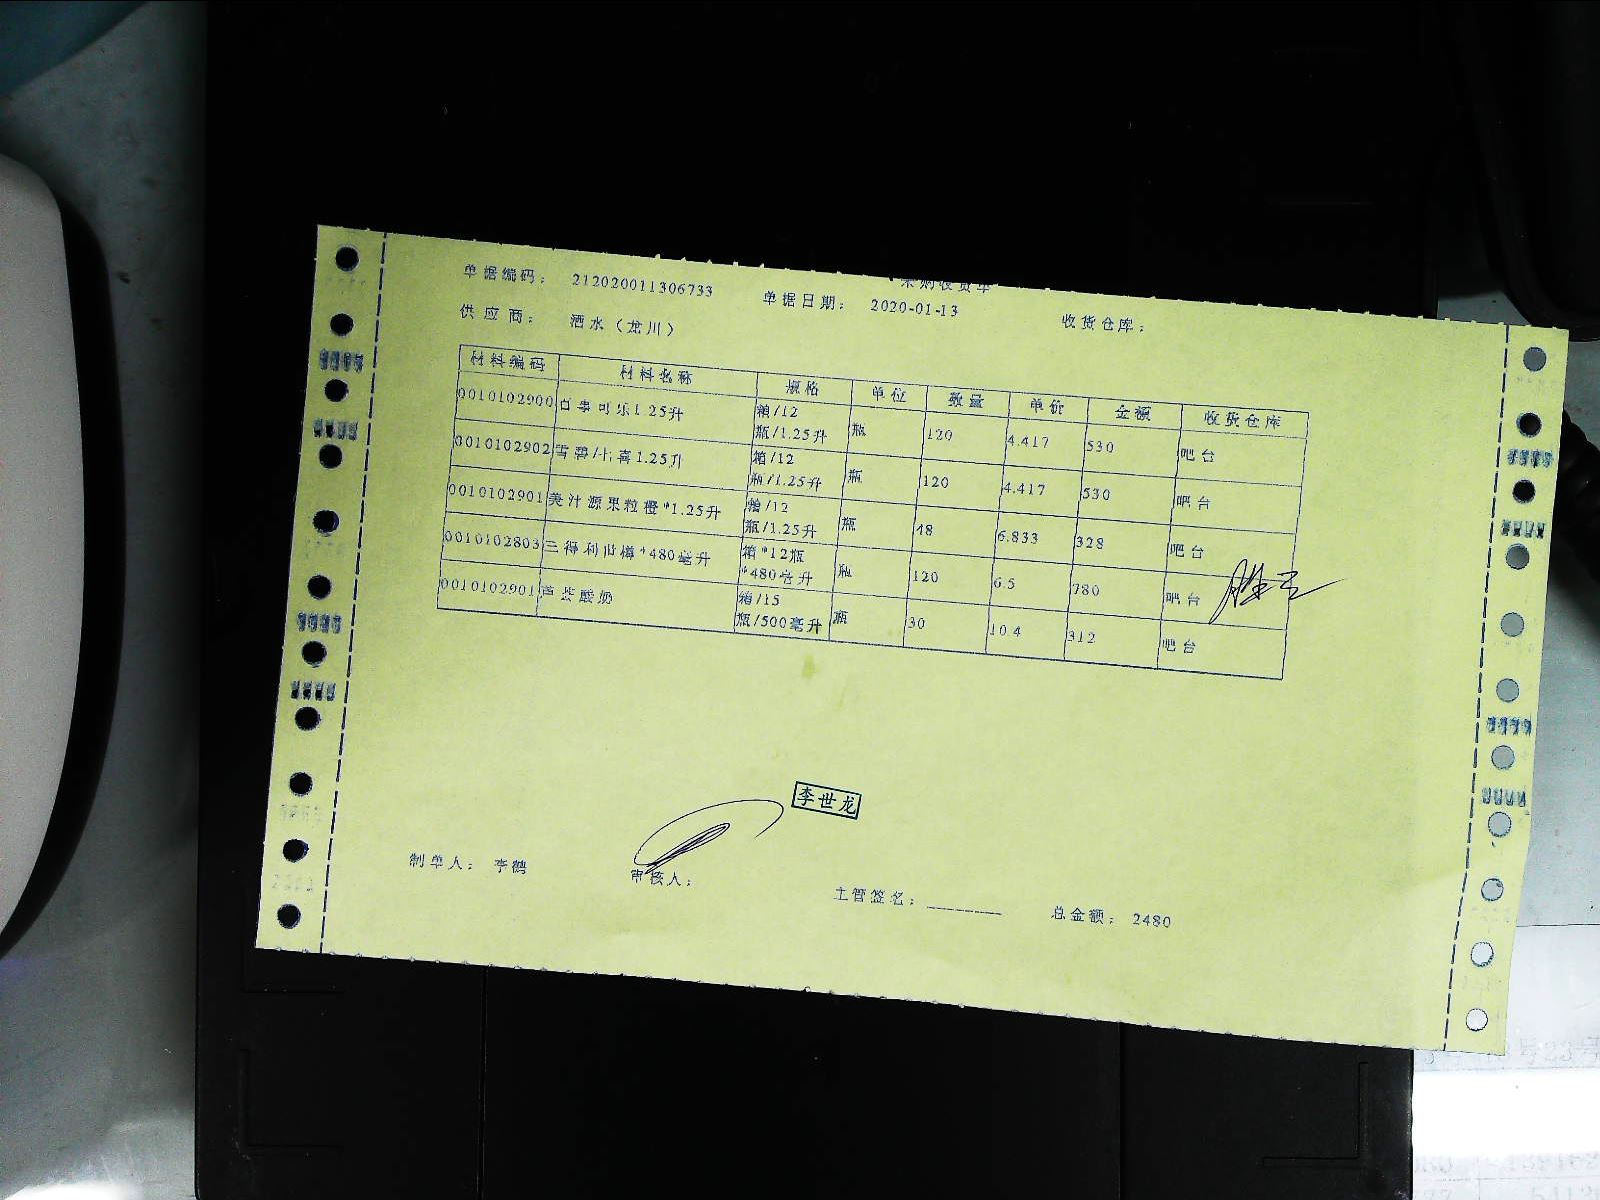 采购收货单
单据编码： 212020011306733 单据日期： 2020-01-13 收货仓库：
供应商： 酒水（龙川）
材料编码 材料名称 规格 单位 数量 单价 金额 收货仓库
0010102900 百事可乐1.25升 箱/12瓶/1.25升 瓶 120 4.417 530 吧台
0010102902 雪碧/七喜1.25升 箱/12瓶/1.25升 瓶 120 4.417 530 吧台
0010102901 美汁源果粒橙*1.25升 箱/12瓶/1.25升 瓶 48 6.833 328 吧台
0010102803 三得利*480毫升 箱*12瓶*480毫升 瓶 120 6.5 780 吧台
0010102901 芦荟酸奶 箱/15瓶/500毫升 瓶 30 10.4 312 吧台
李世龙
制单人： 李鹤 审核人： 主管签名： 总金额： 2480